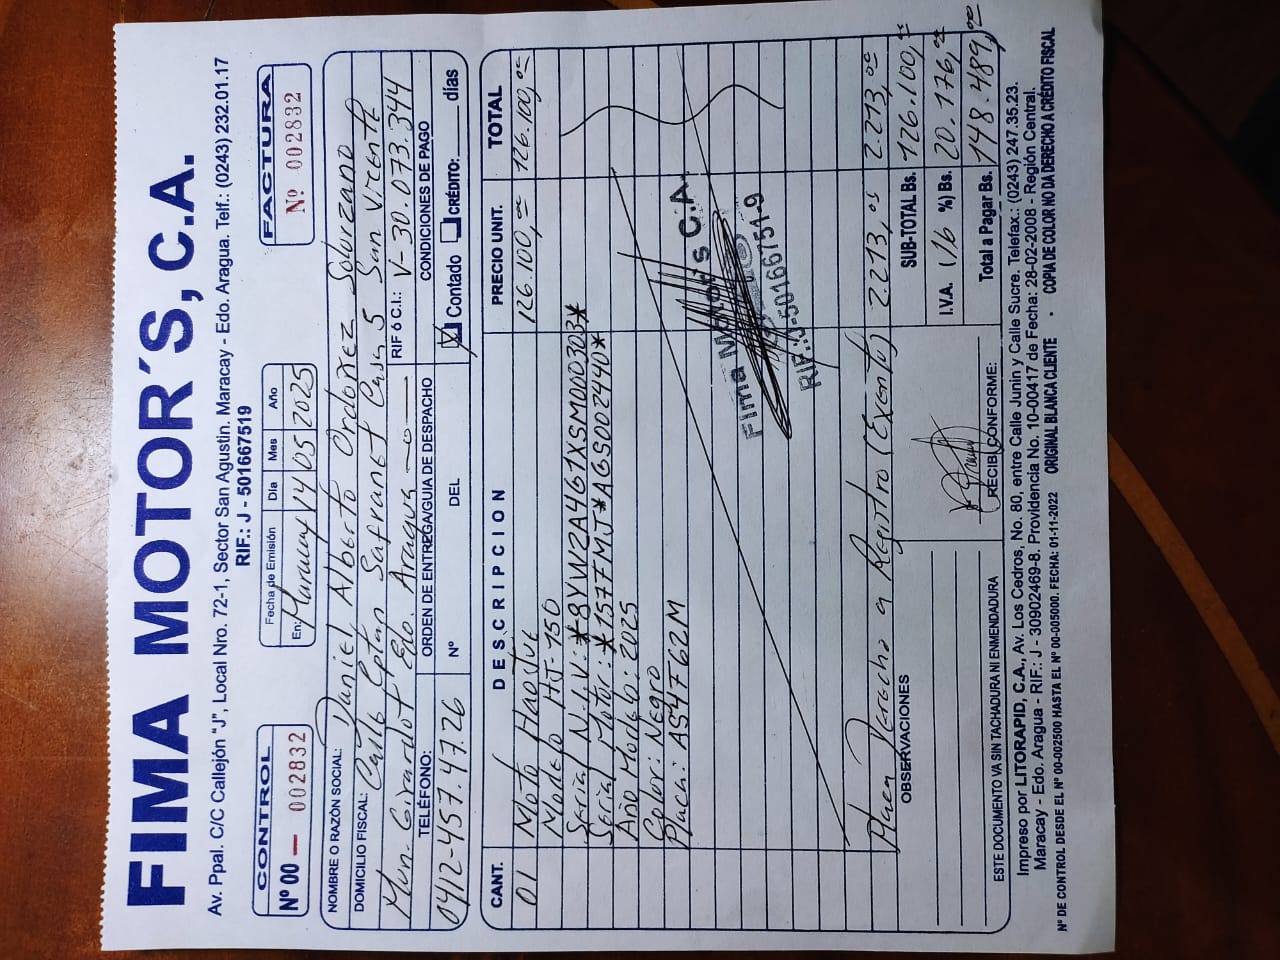 FIMA MOTOR´S, C.A.
Av. Ppal. C/C Callejón "J", Local Nro. 72-1, Sector San Agustín. Maracay - Edo. Aragua. Telf.: (0243) 232.01.17
RIF.: J - 501667519
CONTROL
Nº 00 — 002832
Fecha de Emisión Dia Mes Año
En: Maracay 14 05 2025
FACTURA
Nº 002832
NOMBRE O RAZÓN SOCIAL: Daniel Alberto Ordoñez Solorzano
DOMICILIO FISCAL: Calle Cptan Safranet Casa 5 San Vicente
Mun. Girardot Edo. Aragua
RIF ó C.I.: V-30.073.344
TELÉFONO:
0412-457.47.26
ORDEN DE ENTREGA/GUIA DE DESPACHO
Nº DEL
CONDICIONES DE PAGO
Contado CRÉDITO: ____ días
CANT. DESCRIPCION PRECIO UNIT. TOTAL
01 Moto Haojue 126.100,00 126.100,00
Modelo HJ-150
Serial N.I.V.: *8YW2A4G1XSM000303*
Serial Motor: *157FMJ*AGS002440*
Año Modelo: 2025
Color: Negro
Placa: AS4F62M
Fima Motor's C.A.
RIF.:J-50166751-9
Placa Derecho a Registro (Exento) 2.213,00 2.213,00
OBSERVACIONES
RECIBI CONFORME:
SUB-TOTAL Bs. 126.100,00
I.V.A. (16 %) Bs. 20.176,00
Total a Pagar Bs. 148.489,00
ESTE DOCUMENTO VA SIN TACHADURA NI ENMENDADURA
Impreso por LITORAPID, C.A., Av. Los Cedros, No. 80, entre Calle Junin y Calle Sucre. Telefax.: (0243) 247.35.23.
Maracay - Edo. Aragua - RIF.: J - 30902469-8. Providencia No. 10-00417 de Fecha: 28-02-2008 - Región Central.
Nº DE CONTROL DESDE EL Nº 00-002500 HASTA EL Nº 00-005000. FECHA: 01-11-2022 ORIGINAL BLANCA CLIENTE • COPIA DE COLOR NO DA DERECHO A CRÉDITO FISCAL